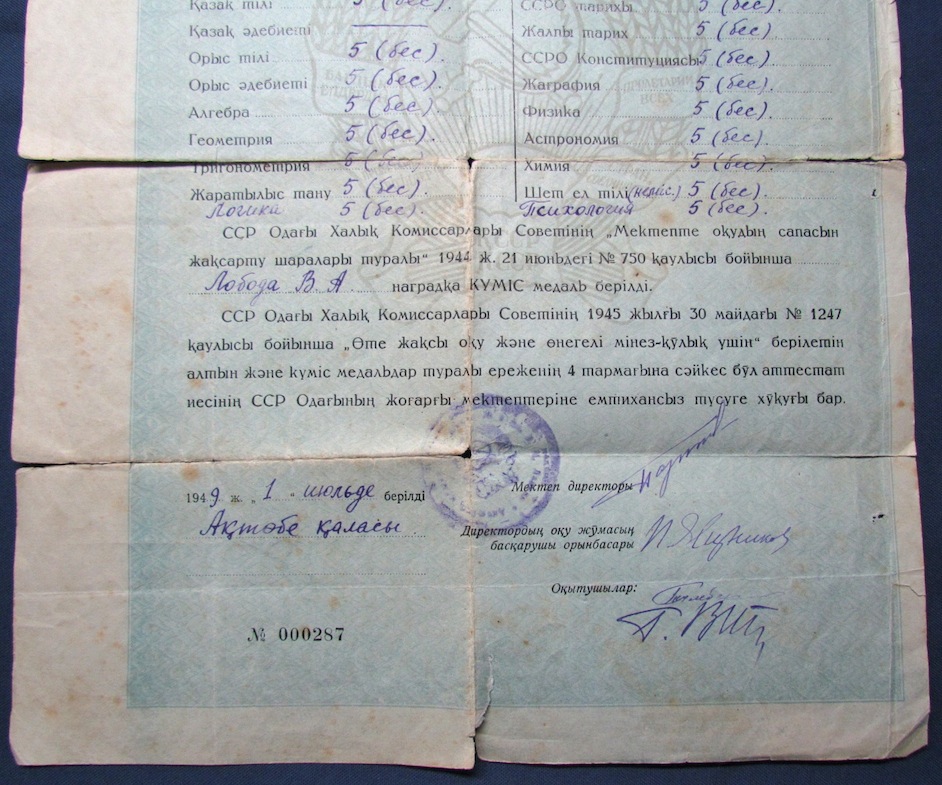 Қазақ тілі 5 (бес).
Қазақ әдебиеті
Орыс тілі 5 (бес).
Орыс әдебиеті 5 (бес).
Алгебра 5 (бес).
Геометрия 5 (бес).
Тригонометрия 5 (бес).
Жаратылыс тану 5 (бес).
Логика 5 (бес).
ССРО тарихы 5 (бес).
Жалпы тарих 5 (бес).
ССРО Конституциясы 5 (бес).
Жағрафия 5 (бес).
Физика 5 (бес).
Астрономия 5 (бес).
Химия 5 (бес).
Шет ел тілі (немис.) 5 (бес).
Психология 5 (бес).
ССР Одағы Халық Комиссарлары Советінің „Мектепте оқудың сапасын
жақсарту шаралары туралы“ 1944 ж. 21 июньдегі № 750 қаулысы бойынша
Лобода В. А. наградқа КҮМІС медаль берілді.
ССР Одағы Халық Комиссарлары Советінің 1945 жылғы 30 майдағы № 1247
қаулысы бойынша „Өте жақсы оқу және өнегелі мінез-құлық үшін“ берілетін
алтын және күміс медальдар туралы ереженің 4 тармағына сәйкес бұл аттестат
иесінің ССР Одағының жоғарғы мектептеріне емтихансыз түсуге хұқұғы бар.
1949 ж. „ 1 “ июльде берілді
Ақтөбе қаласы.
Мектеп директоры
Директордың оқу жұмасын
басқарушы орынбасары
Оқытушылар:
№ 000287